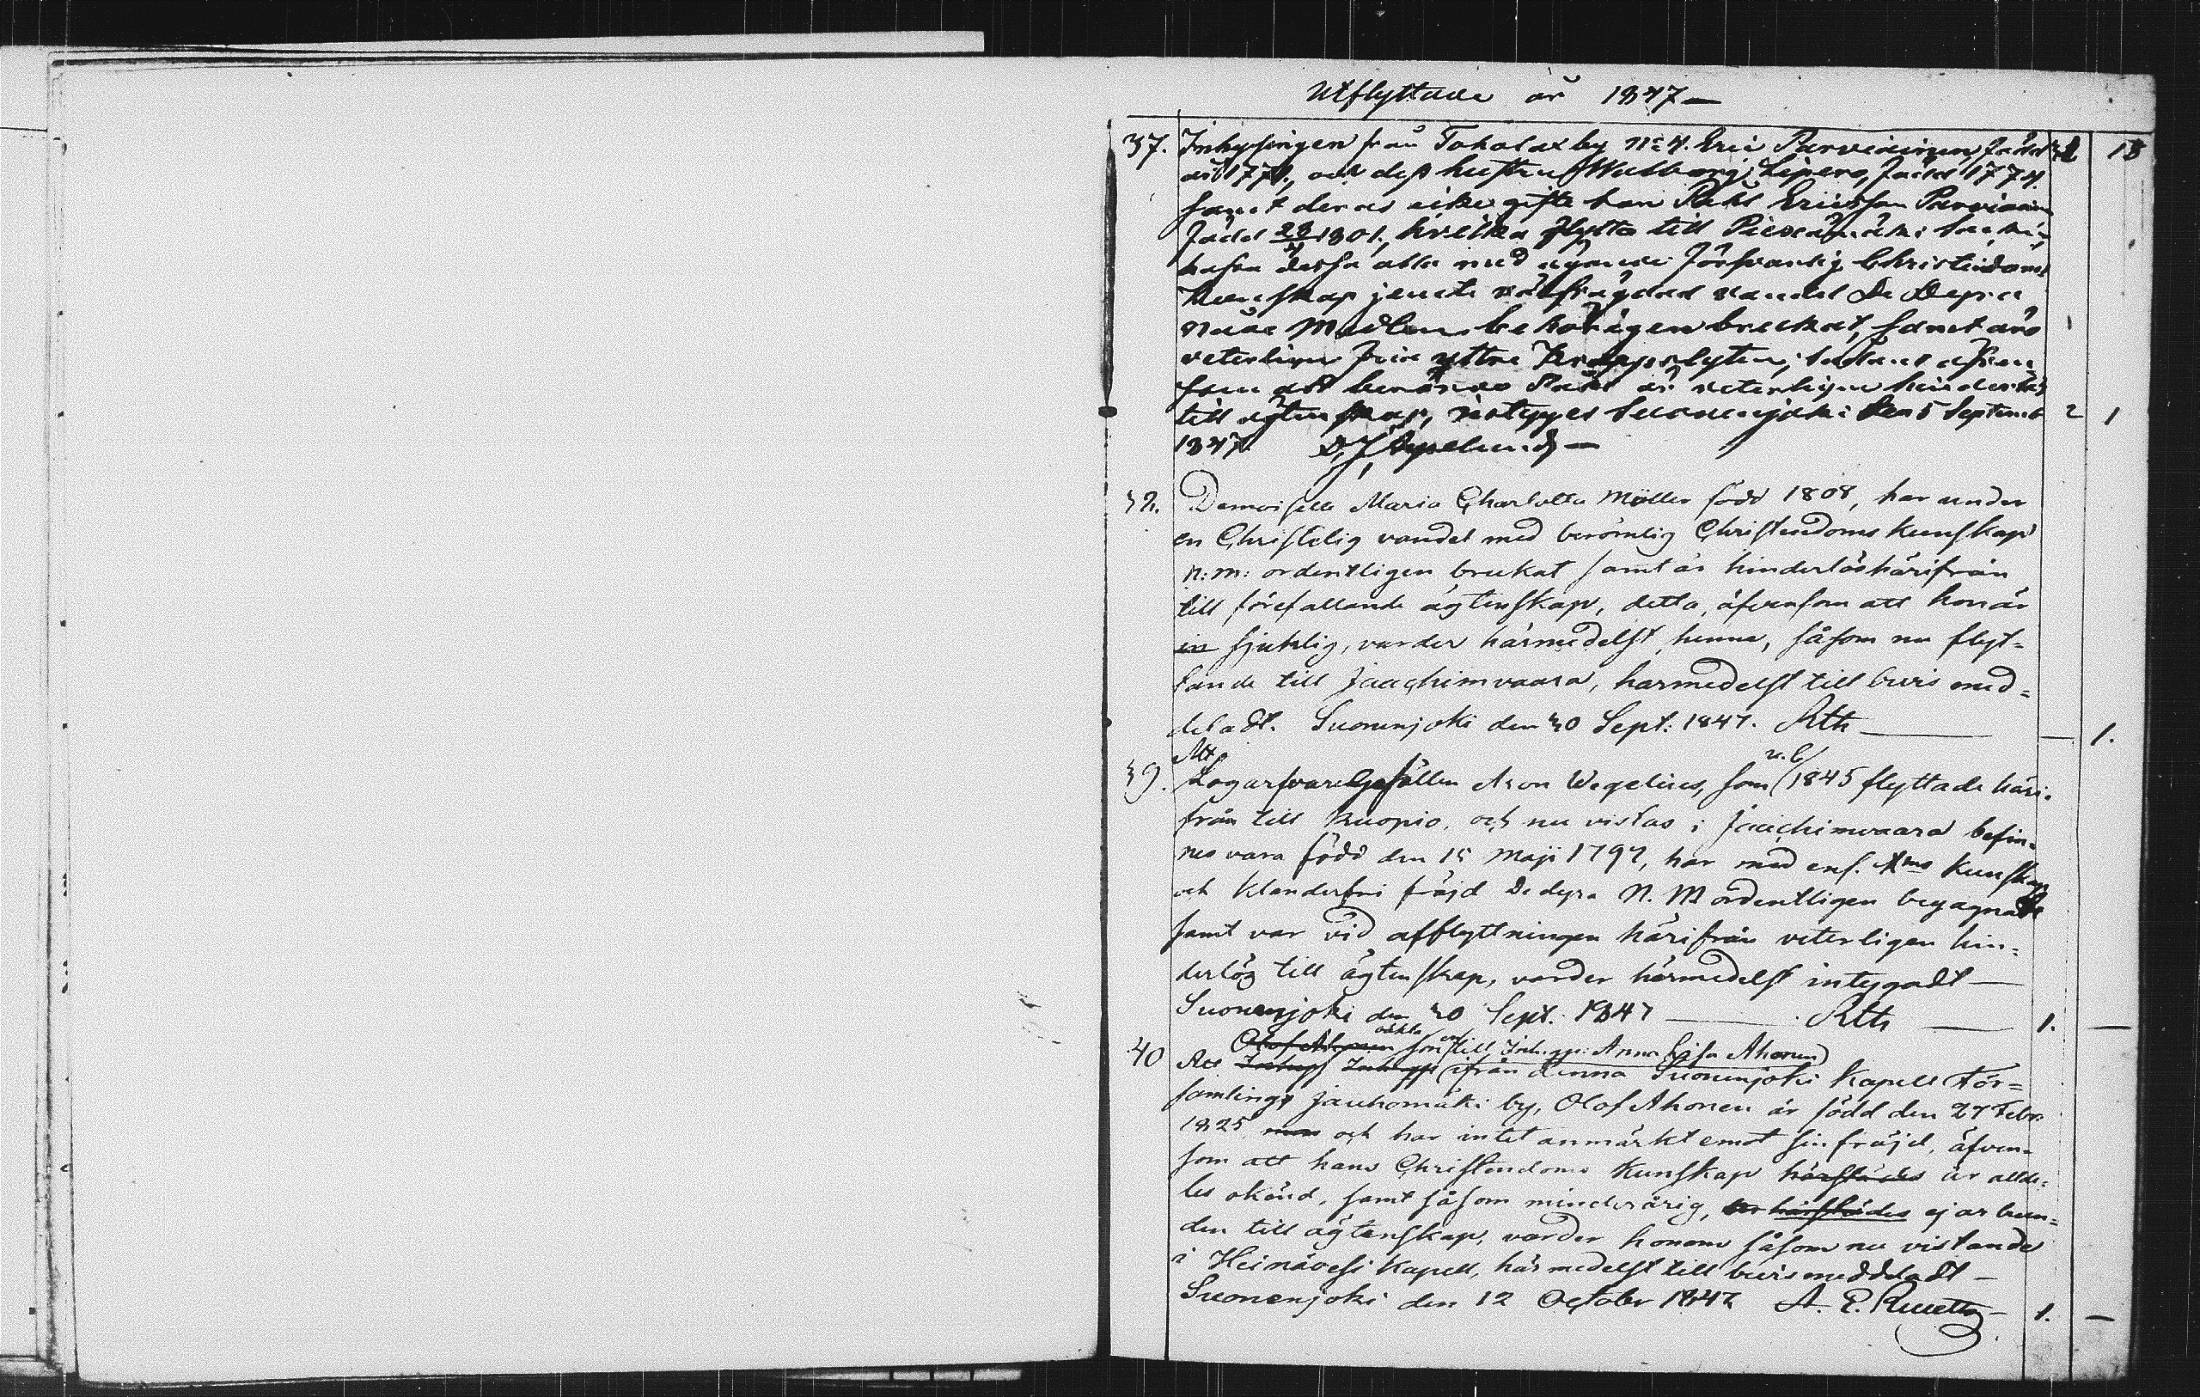 Utflyttade år 1847 —
37. Inhysingen från Toholax by No 4. Eric Parviainen, född 18
år 1771, och dess hustru Walborg Lipero, född 1774
samt deras icke gifte son Påhl Ericsson Parviainen
född 28/4 1801, hvilka flytta till Pieksämäki Socken
hafva dessa alla med ägande försvarlig Christendoms
Kunskap jemte välfrägdad vandel De Dyra
Nåde Medlen behörigen brukat, samt äro
veterligen fria yttre Kroppslyten, sådant äfven
som att benämde Påhl är veterligen hinderlös
till ägtenskap, intygges Suonenjoki den 5 Septemb 2 1
1847. —
38. Demoiselle Maria Charlotta Möller född 1808, har under
en Christelig vandel med berömlig Christendoms Kunskap
n: m: ordentligen brukat samt är hinderlös härifrån
till förefallande ägtenskap, detta, äfvensom att hon är
en sjuklig, varder härmedelst henne, såsom nu flyt-
tande till Jaachimvaara, härmedelst till bevis med-
deladt. Suonenjoki den 30 Sept: 1847. Rth — — 1.
Att u. l.
39. Logarfvare Gesällen Aron Wegelius, som 1845 flyttade häri-
från till Kuopio, och nu vistas i Jaachimvaara befin-
nes vara född den 15 Maji 1797, har med enf. Xms Kunskap
och klanderfri fräjd De dyra N. M ordentligen begagnadt
samt var vid afflyttningen härifrån veterligen hin-
derlös till ägtenskap, varder härmedelst intygadt —
Suonenjoki den 30 Sept. 1847 — Rth — 1. —
Olof Ahonen oäkta son till Inhys: Anna Lisa Ahonen
40 Att Inhys ifrån denna Suonenjoki Kapell För-
samlings Jauhomäki by, Olof Ahonen är född den 27 Febr.
1825 och har intet anmärkt emot sin fräjd, äfven-
som att hans Christendoms Kunskap härstädes är allde-
les okänd, samt såsom minderårig, härstädes ej är bun-
den till ägtenskap, varder honom såsom nu vistande
i Heinävesi Kapell, härmedelst till bevis meddeladt —
Suonenjoki den 12 October 1847 A. E. — 1. —